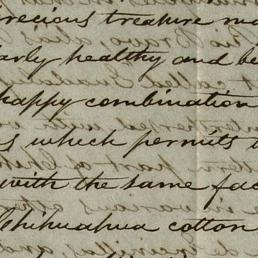 recious treasure
arly healthy and be
happy combination
s which permits
with the same fac
Chihuahua cotton